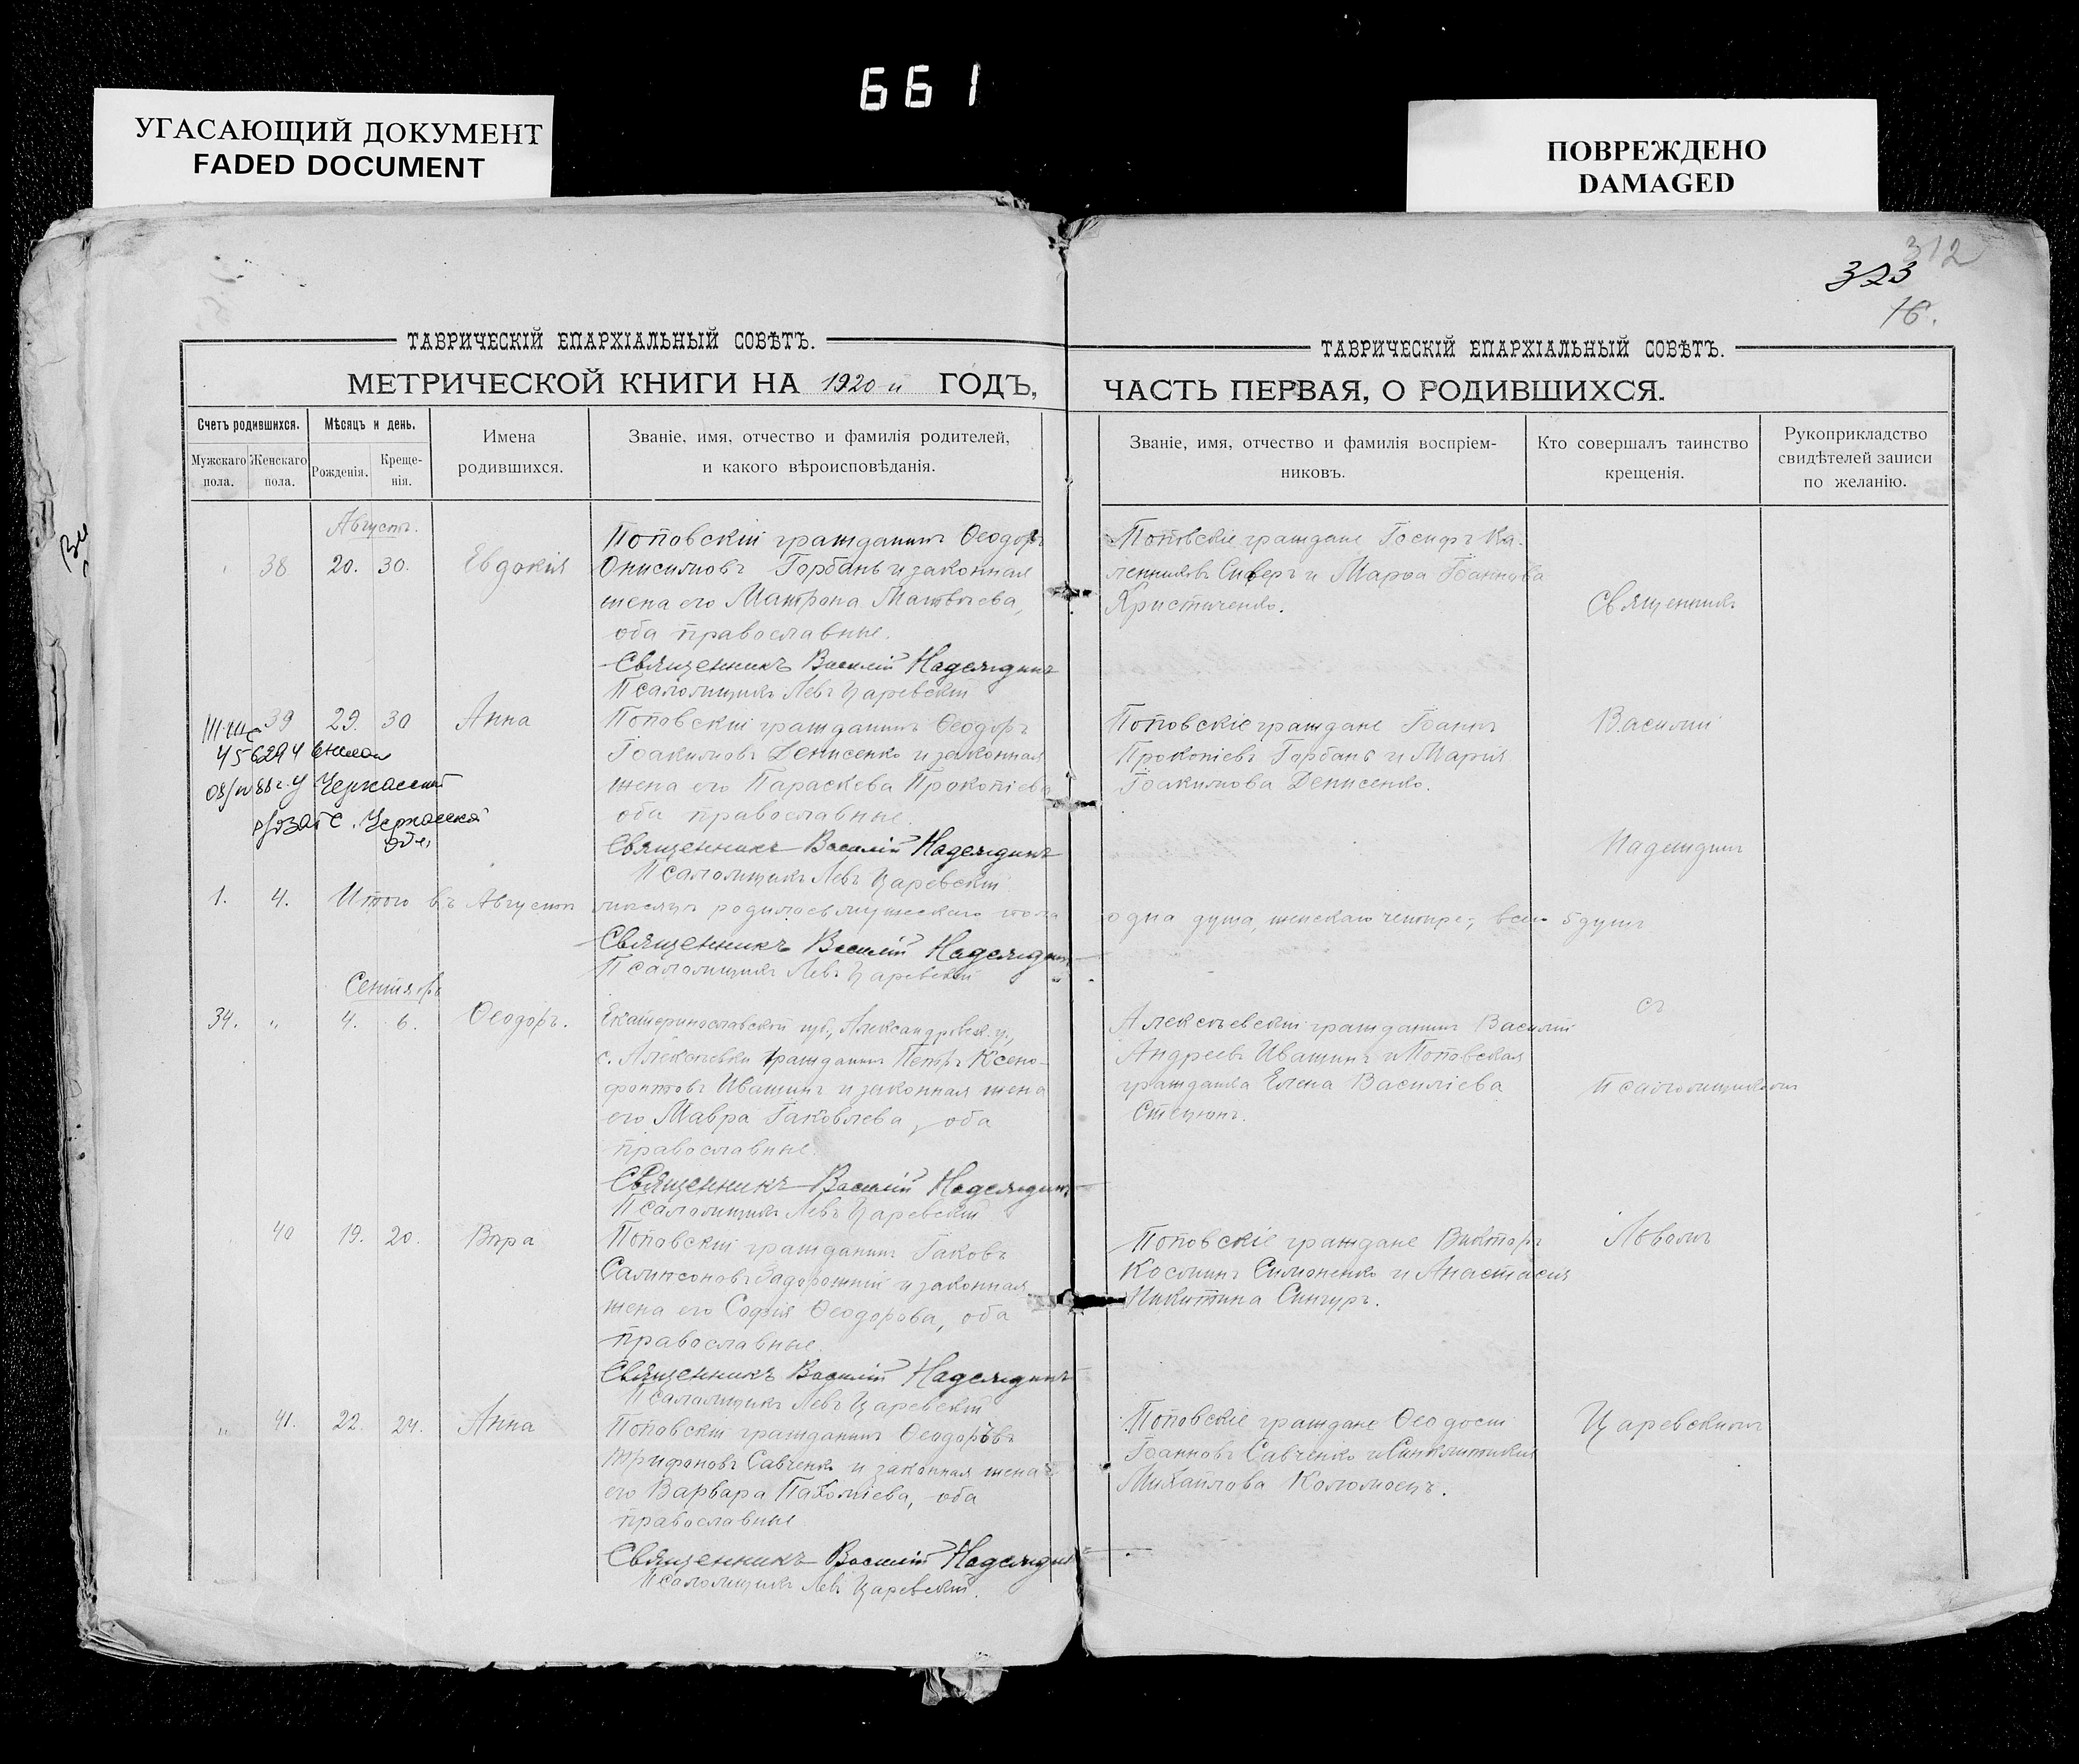 661
УГАСАЮЩИЙ ДОКУМЕНТ
FADED DOCUMENT
ПОВРЕЖДЕНО
DAMAGED
312
323
16.
ТАВРИЧЕСКІЙ ЕПАРХІАЛЬНЫЙ СОВѢТЪ.
МЕТРИЧЕСКОЙ КНИГИ НА 1920-й ГОДЪ,
Счетъ родившихся.
Мужскаго пола.
Женскаго пола.
Мѣсяцъ и день.
Рожденія.
Креще-
нія.
Имена
родившихся.
Званіе, имя, отчество и фамилія родителей,
и какого вѣроисповѣданія.
Августъ.
38 20. 30. Евдокія
Поповскій гражданинъ Ѳеодоръ
Онисимовъ Горбань и законная
жена его Матрона Матвѣева,
оба православные.
Священникъ Василій Надеждинъ
Псаломщикъ Левъ Царевскій
39 29. 30 Анна
456294
Черкасской
Поповскій гражданинъ Ѳеодоръ
Іоакимовъ Денисенко и законная
жена его Параскева Прокопіева
оба православные.
Священникъ Василій Надеждинъ
Псаломщикъ Левъ Царевскій
1. 4. Итого въ Августѣ мѣсяцѣ родилось мужескаго пола
Священникъ Василій Надеждинъ
Псаломщикъ Левъ Царевскій
Сентябрь
34. " 4. 6. Ѳеодоръ.
Екатеринославской губ., Александровск. у.,
с. Алексѣевки гражданинъ Петръ Ксено-
фонтовъ Ивашинъ и законная жена
его Мавра Іаковлева, оба
православные.
Священникъ Василій Надеждинъ
Псаломщикъ Левъ Царевскій
40 19. 20. Вѣра
Поповскій гражданинъ Іаковъ
Сампсоновъ Задорожній и законная
жена его Софія Ѳеодорова, оба
православные.
Священникъ Василій Надеждинъ
Псаломщикъ Левъ Царевскій
" 41. 22. 24. Анна
Поповскій гражданинъ Ѳеодоръ
Трифоновъ Савченко и законная жена
его Варвара Пахоміева, оба
православные
Священникъ Василій Надеждинъ
Псаломщикъ Левъ Царевскій.
ТАВРИЧЕСКІЙ ЕПАРХІАЛЬНЫЙ СОВѢТЪ.
ЧАСТЬ ПЕРВАЯ, О РОДИВШИХСЯ.
Званіе, имя, отчество и фамилія воспріем-
никовъ.
Кто совершалъ таинство
крещенія.
Рукоприкладство
свидѣтелей записи
по желанію.
Поповскіе граждане Іосифъ Ка-
и Марѳа Іоаннова
Христиченко.
Священникъ
Поповскіе граждане Іоаннъ
Прокопіевъ Горбань и Марія
Іоакимова Денисенко.
Василій
Надеждинъ
одна душа, женскаго четыре, всего 5 душъ
съ
Алексѣевскій гражданинъ Василій
Андреевъ Ивашинъ и Поповская
гражданка Елена Василіева
Стецюнъ.
Псаломщикомъ
Поповскіе граждане Викторъ
Косминъ Симоненко и Анастасія
Никитина Сингуръ.
Львомъ
Поповскіе граждане Ѳеодосій
Іоанновъ Савченко и Синклитикія
Михайлова Коломоецъ.
Царевскимъ